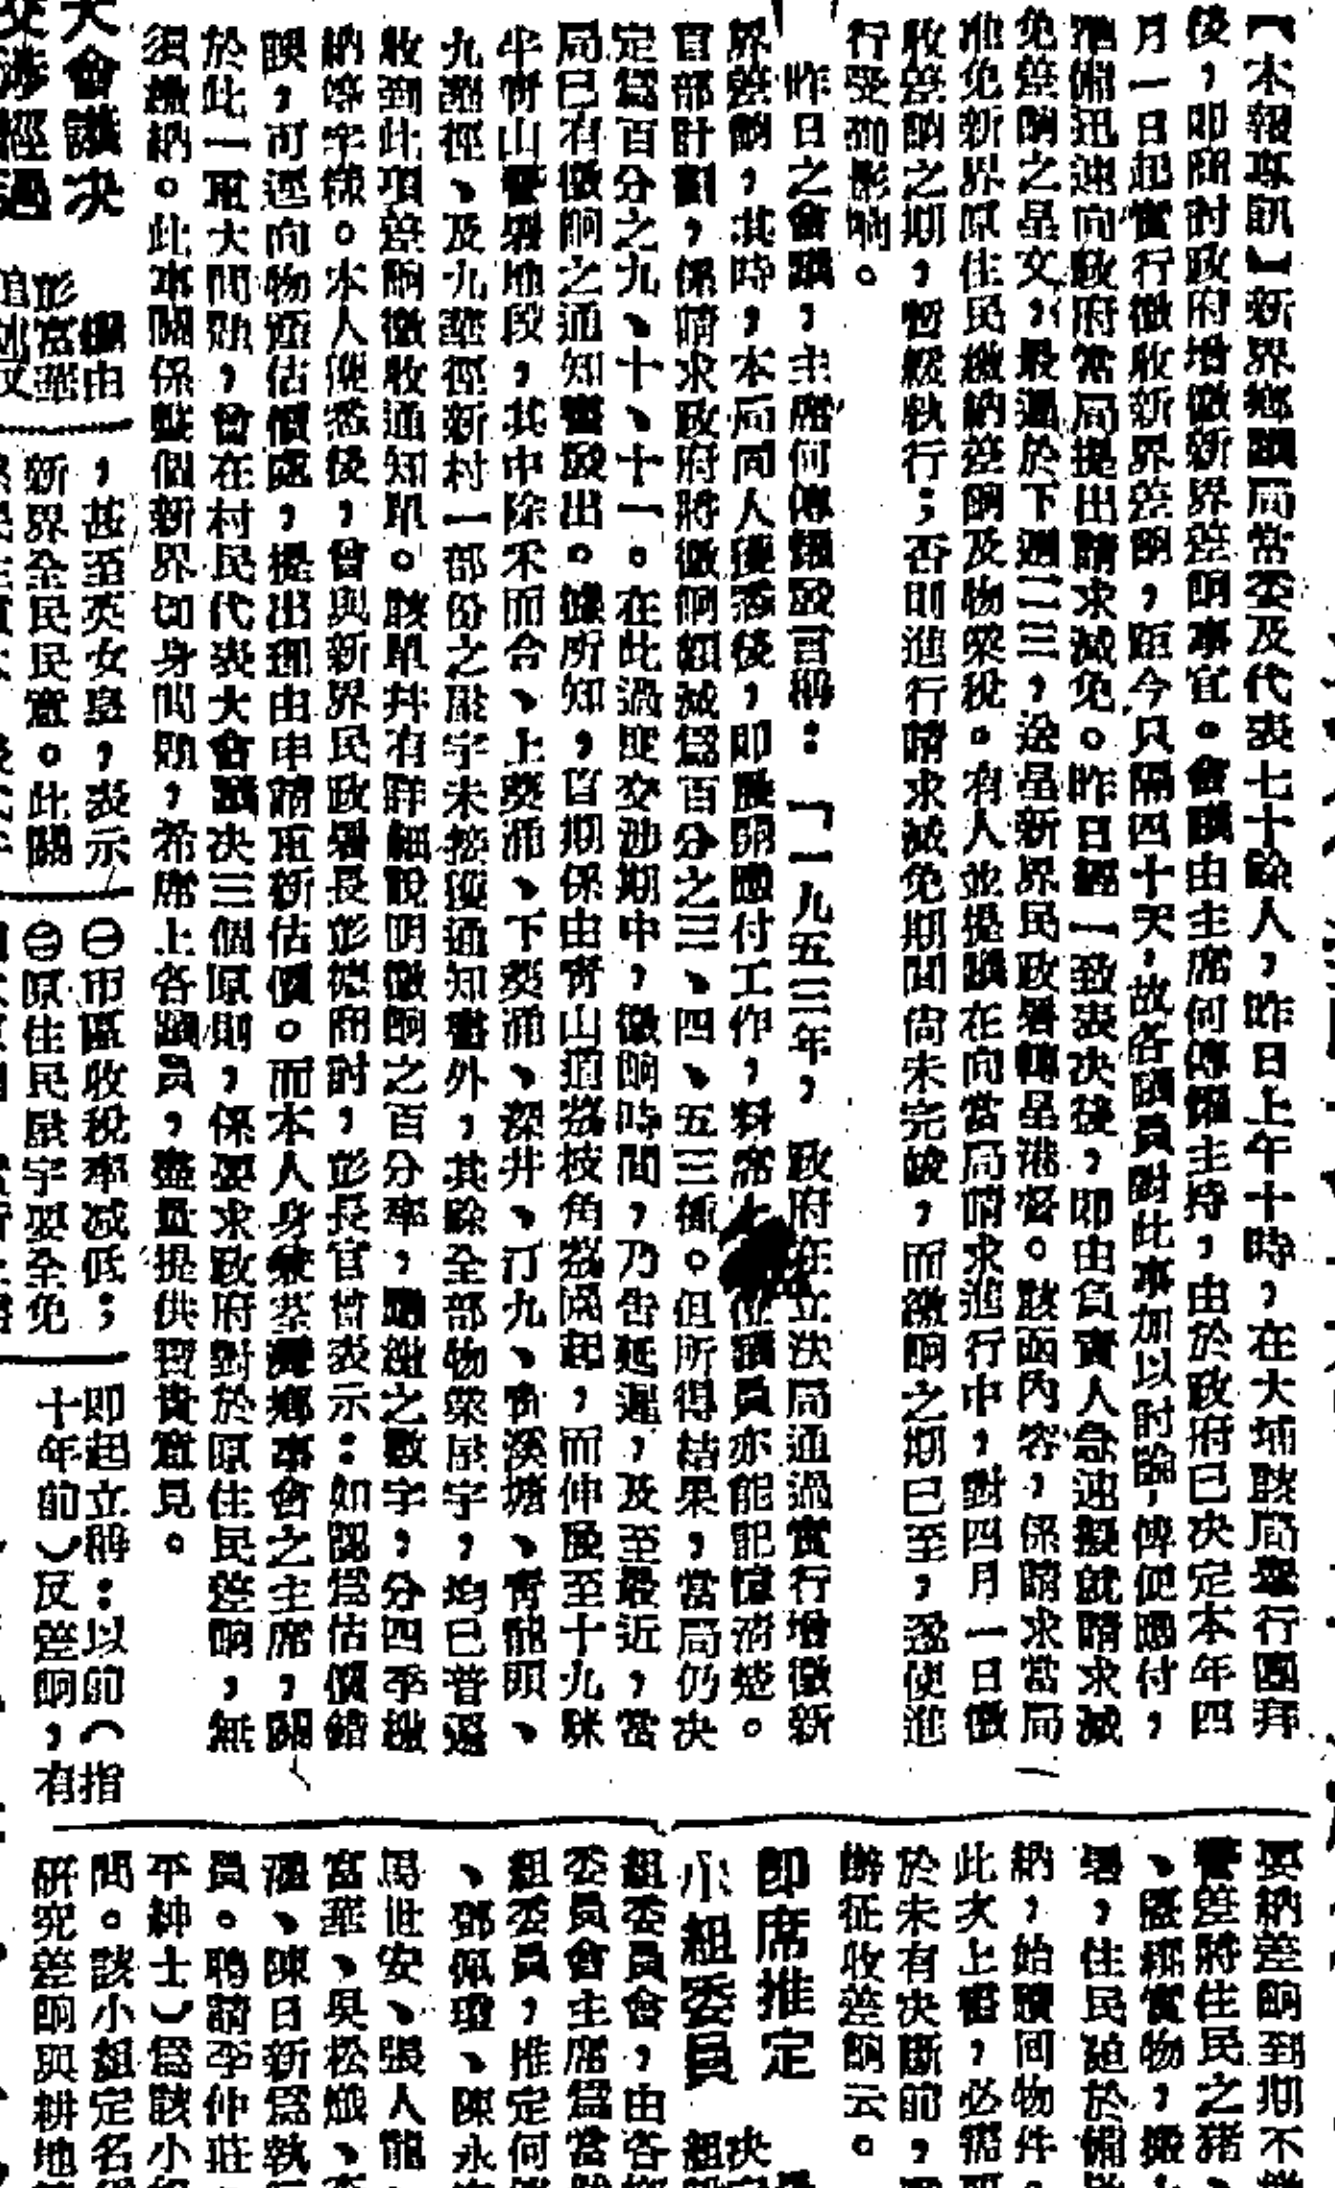 【本報專訊】新界鄉議局常委及代表七十餘人，昨日上午十時，在大埔該局舉行團拜
後，即商討政府增徵新界差餉事宜。會議由主席何傳耀主持，由於政府已決定本年四
月一日起實行徵收新界差餉，距今只隔四十天，故各議員對此事加以討論，俾便應付，
準備迅速向政府當局提出請求減免。昨日經一致表決後，即由負責人急速擬就請求減
免差餉之呈文，最遲於下週二三，送呈新界民政署轉呈港督。該函內容，係請求當局
准免新界原住民繳納差餉及物業稅。有人並提議在向當局請求進行中，對四月一日徵
收差餉之期，暫緩執行；否則進行請求減免期間尙未完竣，而徵餉之期已至，遂使進
行受御影响。
昨日之會議，主席何傳耀發言稱：「一九五三年，政府在立決局通過實行增徵新
界差餉，其時，本局同人獲悉後，即展開應付工作，料席上　位議員亦能記憶淸楚。
官部計劃，係請求政府將徵餉額減爲百分之三、四、五三種。但所得結果，當局仍決
定爲百分之九、十、十一。在此過度交涉期中，徵餉時間，乃吿延遲，及至最近，當
局已有徵餉之通知書發出。據所知，首期係由靑山道荔枝角荔園起，而伸展至十九咪
半靑山警署地段，其中除禾而合、上葵涌、下葵涌、深井、汀九、　溪塘、靑龍頭、
九　徑、及九華徑新村一部份之屋宇未接獲通知書外，其餘全部物業屋宇，均已普遍
收到此項差餉徵收通知單。該單并有詳細說明徵餉之百分率，　繳之數字，分四季繳
納等字樣。本人獲悉後，曾與新界民政署長彭德商討，彭長官曾表示：如認爲估價錯
誤，可逕向物業估價處，提出理由申請重新估價。而本人身兼荃灣鄉事會之主席，關
於此一重大問題，曾在村民代表大會議決三個原則，係要求政府對於原住民差餉，無
須繳納。此事關係整個新界切身問題，希席上各議員，盡量提供寶貴意見。
大會議决
交涉經過
　由
彭富華
，甚至英女皇，表示
新界全民民意。此關
㊀市區收稅率減低；
㊁原住民屋宇要全免
即起立稱：以前（指
十年前）反差餉，有
要納差餉到期不
警差將住民之豬、
、　　實物，搬
署，住民　於備
納，始贖回物件。
此次上書，必需
於未有決斷前，
辦征收差餉云。
即席推定
小組委員
決
組
組委員會，由各
委員會主席爲當
組委員，推定何
、鄧佩瓊、陳永
馬世安、張人龍
富華、吳松熾、
　、陳日新爲執
員。聘請李仲莊
平紳士）爲該小
問。該小組定名
硏究差餉與耕地